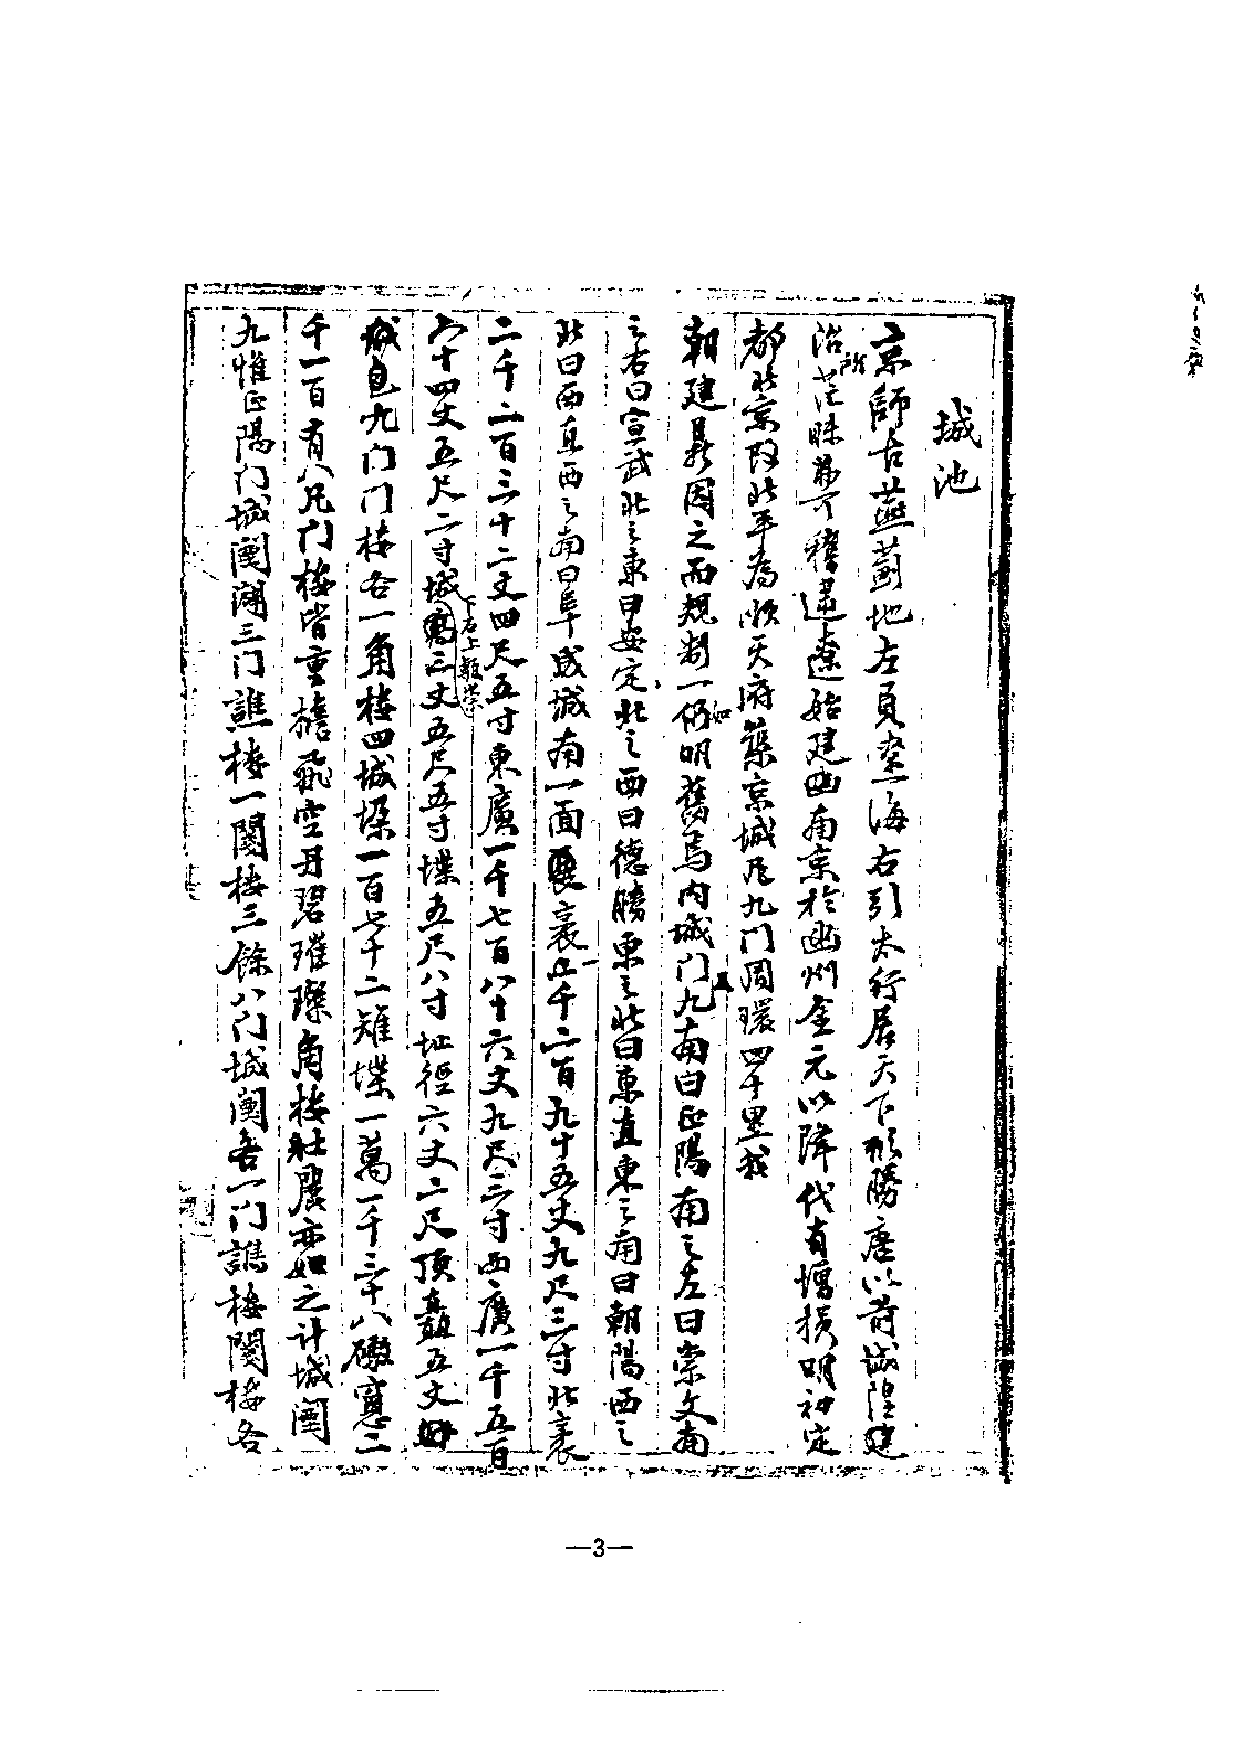 城池
京師古燕薊地左負滄海右引太行居天下形勝唐以前城隍建
沿所茫昧弗可稽遼始建南京於幽州金元以降代有增損明初定
都北京改北平為順天府築京城凡九門周環四十里我
朝建鼎因之而規制一仍如明舊焉內城門九南曰正陽南之左曰崇文南
之右曰宣武北之東曰安定北之西曰德勝東之北曰東直東之南曰朝陽西之
北曰西直西之南曰阜成城南一面袤二千二百九十五丈九尺三寸北袤
二千二百三十二丈四尺五寸東廣一千七百八十六丈九尺三寸西廣一千五百
六十四丈五尺二寸城高三丈五尺五寸堞五尺八寸址徑六丈二尺頂五丈
下右上
城包九門門樓各一角樓四城垛一百七十二雉堞一萬一千三十八礮窻二
千一百有八凡門樓皆重檐飛空丹碧璀璨角樓壯麗亦如之計城闉
九惟正陽門城闉闢三門譙樓一闉樓三餘八門城闉各一門譙樓闉樓各
—3—